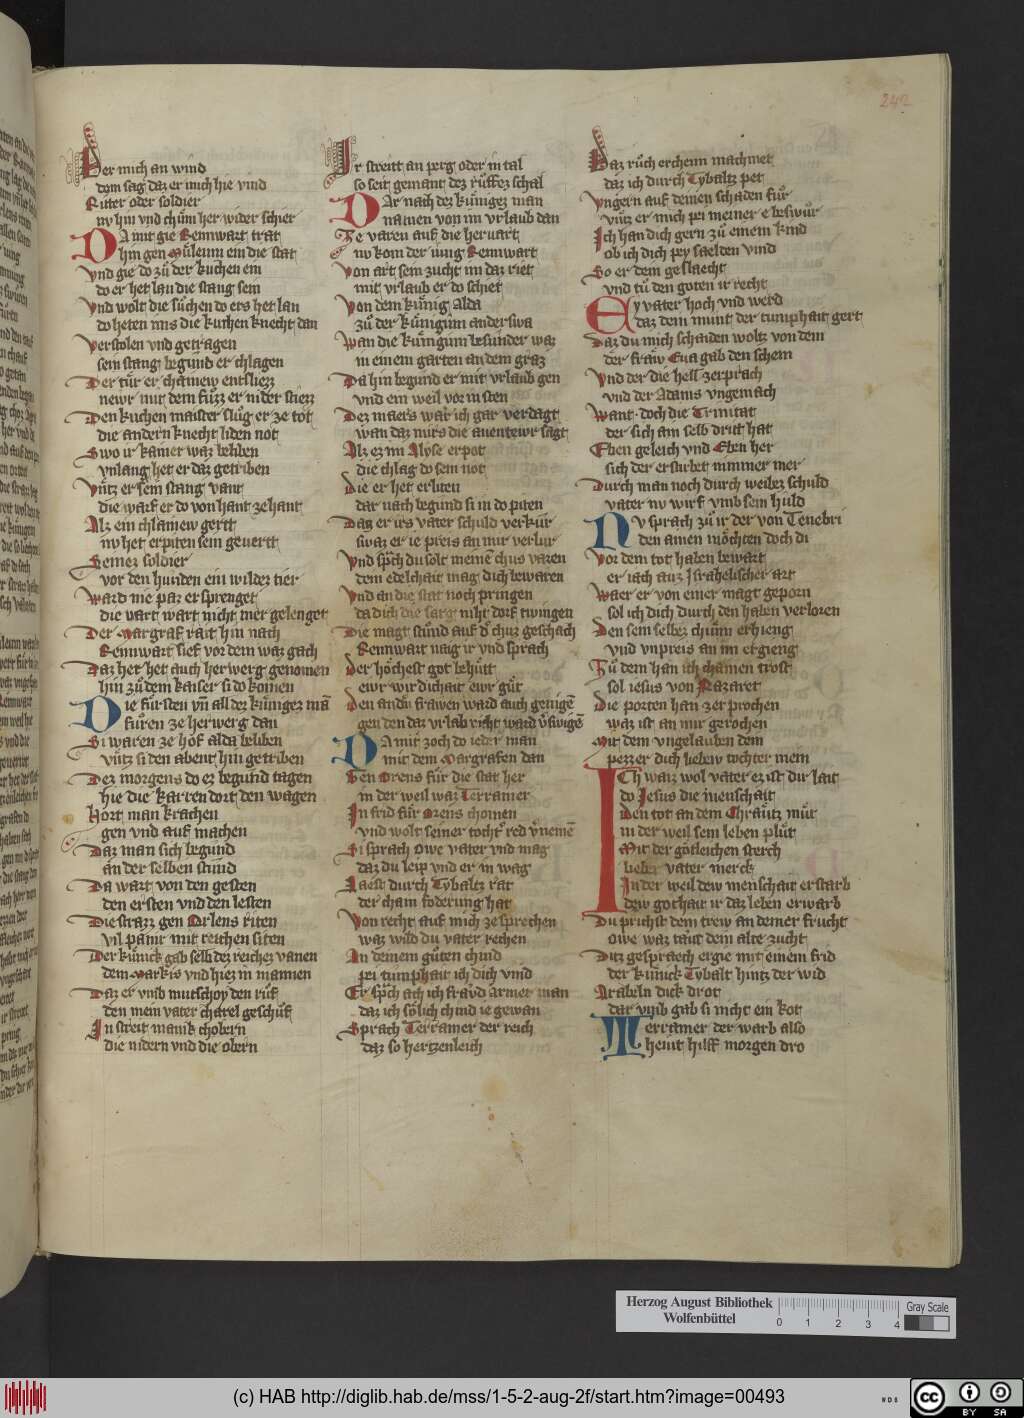 242
Der mich an wind
dem sag daz er mich hie vind
Ritter oder soldier
nv hin vnd chům her wider schier
DA mit gie Rennwart trat
hin gen Můleum ein die stat
Vnd gie do zů der kuchen ein
do er het lan die stang sein
Vnd wolt die sůchen do ers het lan
do heten mis die kuchen knecht dan
Verstolen vnd getragen
sein stang begund er chlagen
Der tůr er chainew entsliezz
newr mit dem fůzz er nider stiezz
Den kuchen maister slůg er ze tot
die andern knecht liden not
Swo ir kainer waz beliben
vnlang het er daz getriben
Vntz er sein stang vant
die warf er do von hant ze hant
Alz ein chlainew gertt
nv het erpiten sein geuertt
Remez soldier
vor den hunden ein wildez tier
Ward nie paz ersprenget
die vart wart nicht mer gelenget
Der Margraf rait hin nach
Rennwart lief vor dem waz gach
Daz het het auch herwerg genomen
hin zů dem kaiser si do komen
Die fůrsten vñ all dez kůnigez mã
fůren ze herwerg dan
Si waren ze hof alda beliben
vntz si den abent hin getriben
Dez morgens do ez begund tagen
hie die karren dort den wagen
Hort man krachen
gen vnd auf machen
Daz man sich begund
an der selben stund
Da wart von den gesten
den ersten vnd den lesten
Die strazz gen Orlens riten
vil panir mit reichen siten
Der kůnick gab selb dez reichez vanen
dem Markis vnd hiez in mannen
Daz er vmb mutschoy den růf
den mein vater charel geschůf
In streit manik chobern
die nidern vnd die obern
Ir streitt an perg oder in tal
so seit gemant dez růffez schal
DAr nach dez kůnigez man
namen von im vrlaub dan
Ze varen auf die heruart
nv kom der iung Rennwart
Von art sein zucht im daz riet
mit vrlaub er do schiet
Von dem kůnig alda
zů der kůniginn anderswa
Wan die kůniginn besunder waz
in einem garten an dem graz
Da hin begund er mit vrlaub gen
vnd ein weil vor in sten
Dez maers war ich gar verdagt
wan daz mirs die auentewr sagt
Alz ez im Alyse erpot
die chlag do sein not
Die er het erliten
dar nach begund si in do piten
Daz er irs vater schuld verkůr
swaz er ie preis an mir verlur
Vnd sp̃ch du solt meinẽ chus varen
dem edelchait mag dich bewaren
Vnd an die stat noch pringen
da dich die sarg niht dorf twingen
Die magt stůnd auf d' chuz geschach
Rennwart naig ir vnd sprach
Der hőchest got behůtt
ewr wirdichait ewr gůt
Den andn frawen ward auch genigẽ
gen den daz vrlab nicht ward v'swigẽ
DA mit zoch do ieder man
mit dem Margrafen dan
Gen Orens fůr die stat her
in der weil waz Terramer
In frid fůr Orens chomen
vnd wolt seiner tocht' red v'nemẽ
Si sprach owe vater vnd mag
daz du leip vnd er in wag
Laest durch Tybaltz rat
der chain foderung hat
Von recht auf mich ze sprechen
waz wild du vater rechen
An deinem gůten chind
pei tumphait ich dich vind
Er sp̃ch ach ich fravd armer man
daz ich sőlich chind ie gewan
Sprach Terramer der reich
daz so hertzenleich
Daz růch erchenn machmet
daz ich durch Tybaltz pet
Vngern auf deinen schaden fůr
vntz er mich pei meiner e beswůr
Ich han dich gern zů einem kind
ob ich dich pey saelden vind
So er dem geslaecht
vnd tů den goten ir recht
Ey vater hoch vnd werd
daz dein munt der tumphait gert
Daz du mich schaiden woltz von dem
der fraw Eua gab den schein
Vnd der die hell zerprach
vnd der Adams vngemach
Want doch die Trinitat
der sich am selb dritt hat
Eben geleich vnd Eben her
sich der ersturbet nimmer mer
Durch man noch durch weibez schuld
vater nv wirf vmb sein huld
NV sprach zů ir der von Tenebri
den ainen mőchten doch di
Vor dem tot haben bewart
er iach auz Israhelischer art
Waer er von einer magt geporn
sol ich dich durch den haben verloren
Den sein selbez chůnn erhieng
vnd vnpreis an im ergieng
Zů dem han ich chainen trost
sol iesus von Nazaret
Die porten han zerprochen
waz ist an mir gerochen
Mit dem vngelauben dein
pezzer dich liebew tochter mein
ICh waiz wol vater ez ist dir lait
do Iesus die menschait
Den tot an dem Chrautz mit
in der weil sein leben plůt
Mit der gőtleichen sterch
lieber vater merck
In der weil dew menschait erstarb
dew gothait ir daz leben erwarb
Du prichst dein trew an deiner frucht
owe waz taut dein alte zucht
Ditz gespraech ergie mit einem frid
der kůnick Tybalt hintz der wid
Arabeln dick drot
dar vmb gab si nicht ein kot
Terramer der warb also
heiut hilff morgen dro
Herzog August Bibliothek
Wolfenbüttel
0 1 2 3 4
Gray Scale
(c) HAB http://diglib.hab.de/mss/1-5-2-aug-2f/start.htm?image=00493
WDB
cc BY SA